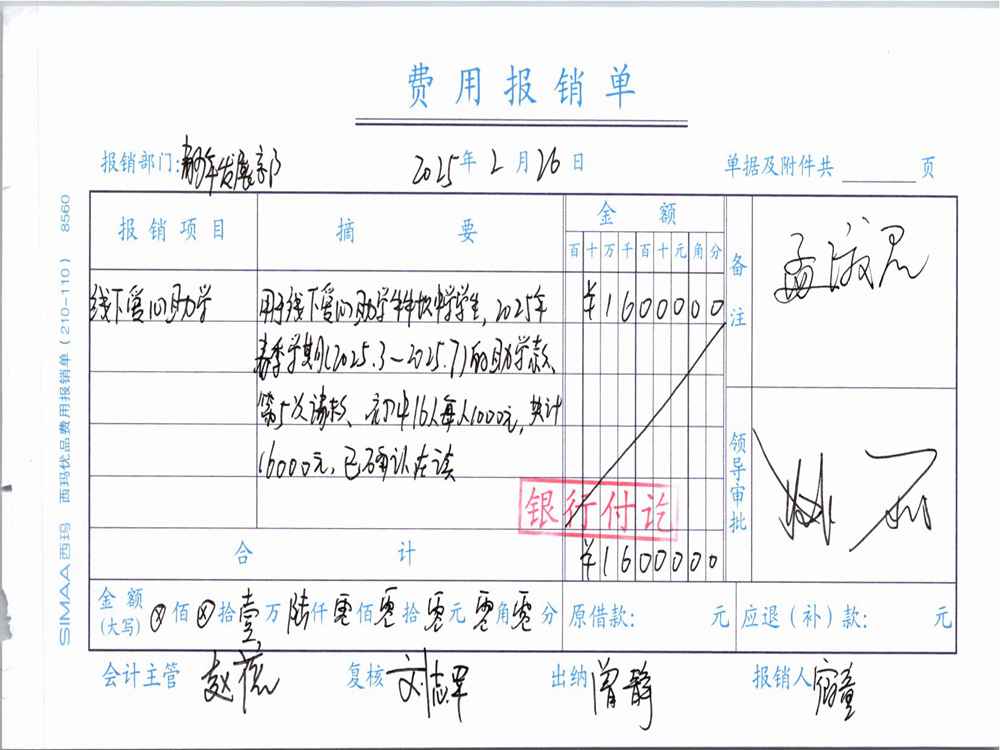 费用报销单
报销部门: 青年发展部 2025年 2月 26日 单据及附件共 页
报销项目 摘要 金额 备注
百十万千百十元角分
线下爱心助学 用于线下爱心助学 中学学生,2025年 ¥1600000
春季学期(2025.3—2025.7)的助学款、
第5次请款、初中16人每人1000元,共计
16000元,已确认在读
领导审批
银行付讫
合计 ¥1600000
金额(大写) ⊗佰⊗拾壹万陆仟零佰零拾零元零角零分 原借款: 元 应退(补)款: 元
会计主管 赵 复核 刘志军 出纳 曾静 报销人
SIMAA西玛 西玛优品费用报销单(210-110) 8560